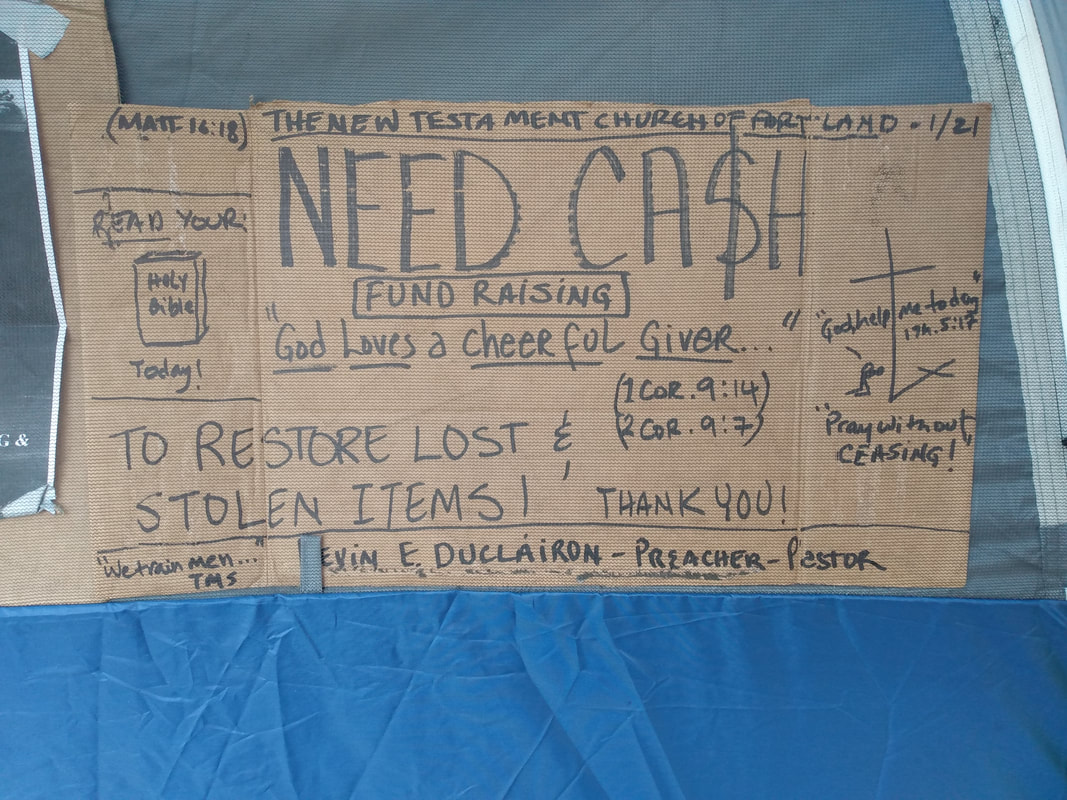 (MATT 16:18) THE NEW TESTAMENT CHURCH OF PORTLAND - 1/21
NEED CA$H
FUND RAISING
"God Loves a Cheerful Giver..."
(1 COR. 9:14)
(2 COR. 9:7)
TO RESTORE LOST &
STOLEN ITEMS! THANK YOU!
READ YOUR
HOLY
Bible
Today!
"God, help me today"
1Th. 5:17
"Pray without
CEASING!"
"We train men..."
TMS
EVIN E. DUCLAIRON - PREACHER - PASTOR
G &